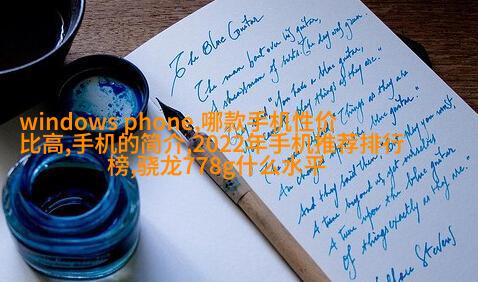 The Blue Guitar
The man bent over his guitar,
A shearsman of sorts. The day was green.
"You have a blue guitar,
play things as they are."
"Things as they are
blue guitar."
And they said play you must,
A tune beyond us, yet ourselves
A tune upon the blue guitar
Of things exactly as they are."
Stevens
windows phone,哪款手机性价
比高,手机的简介,2022年手机推荐排行
榜,骁龙778g什么水平